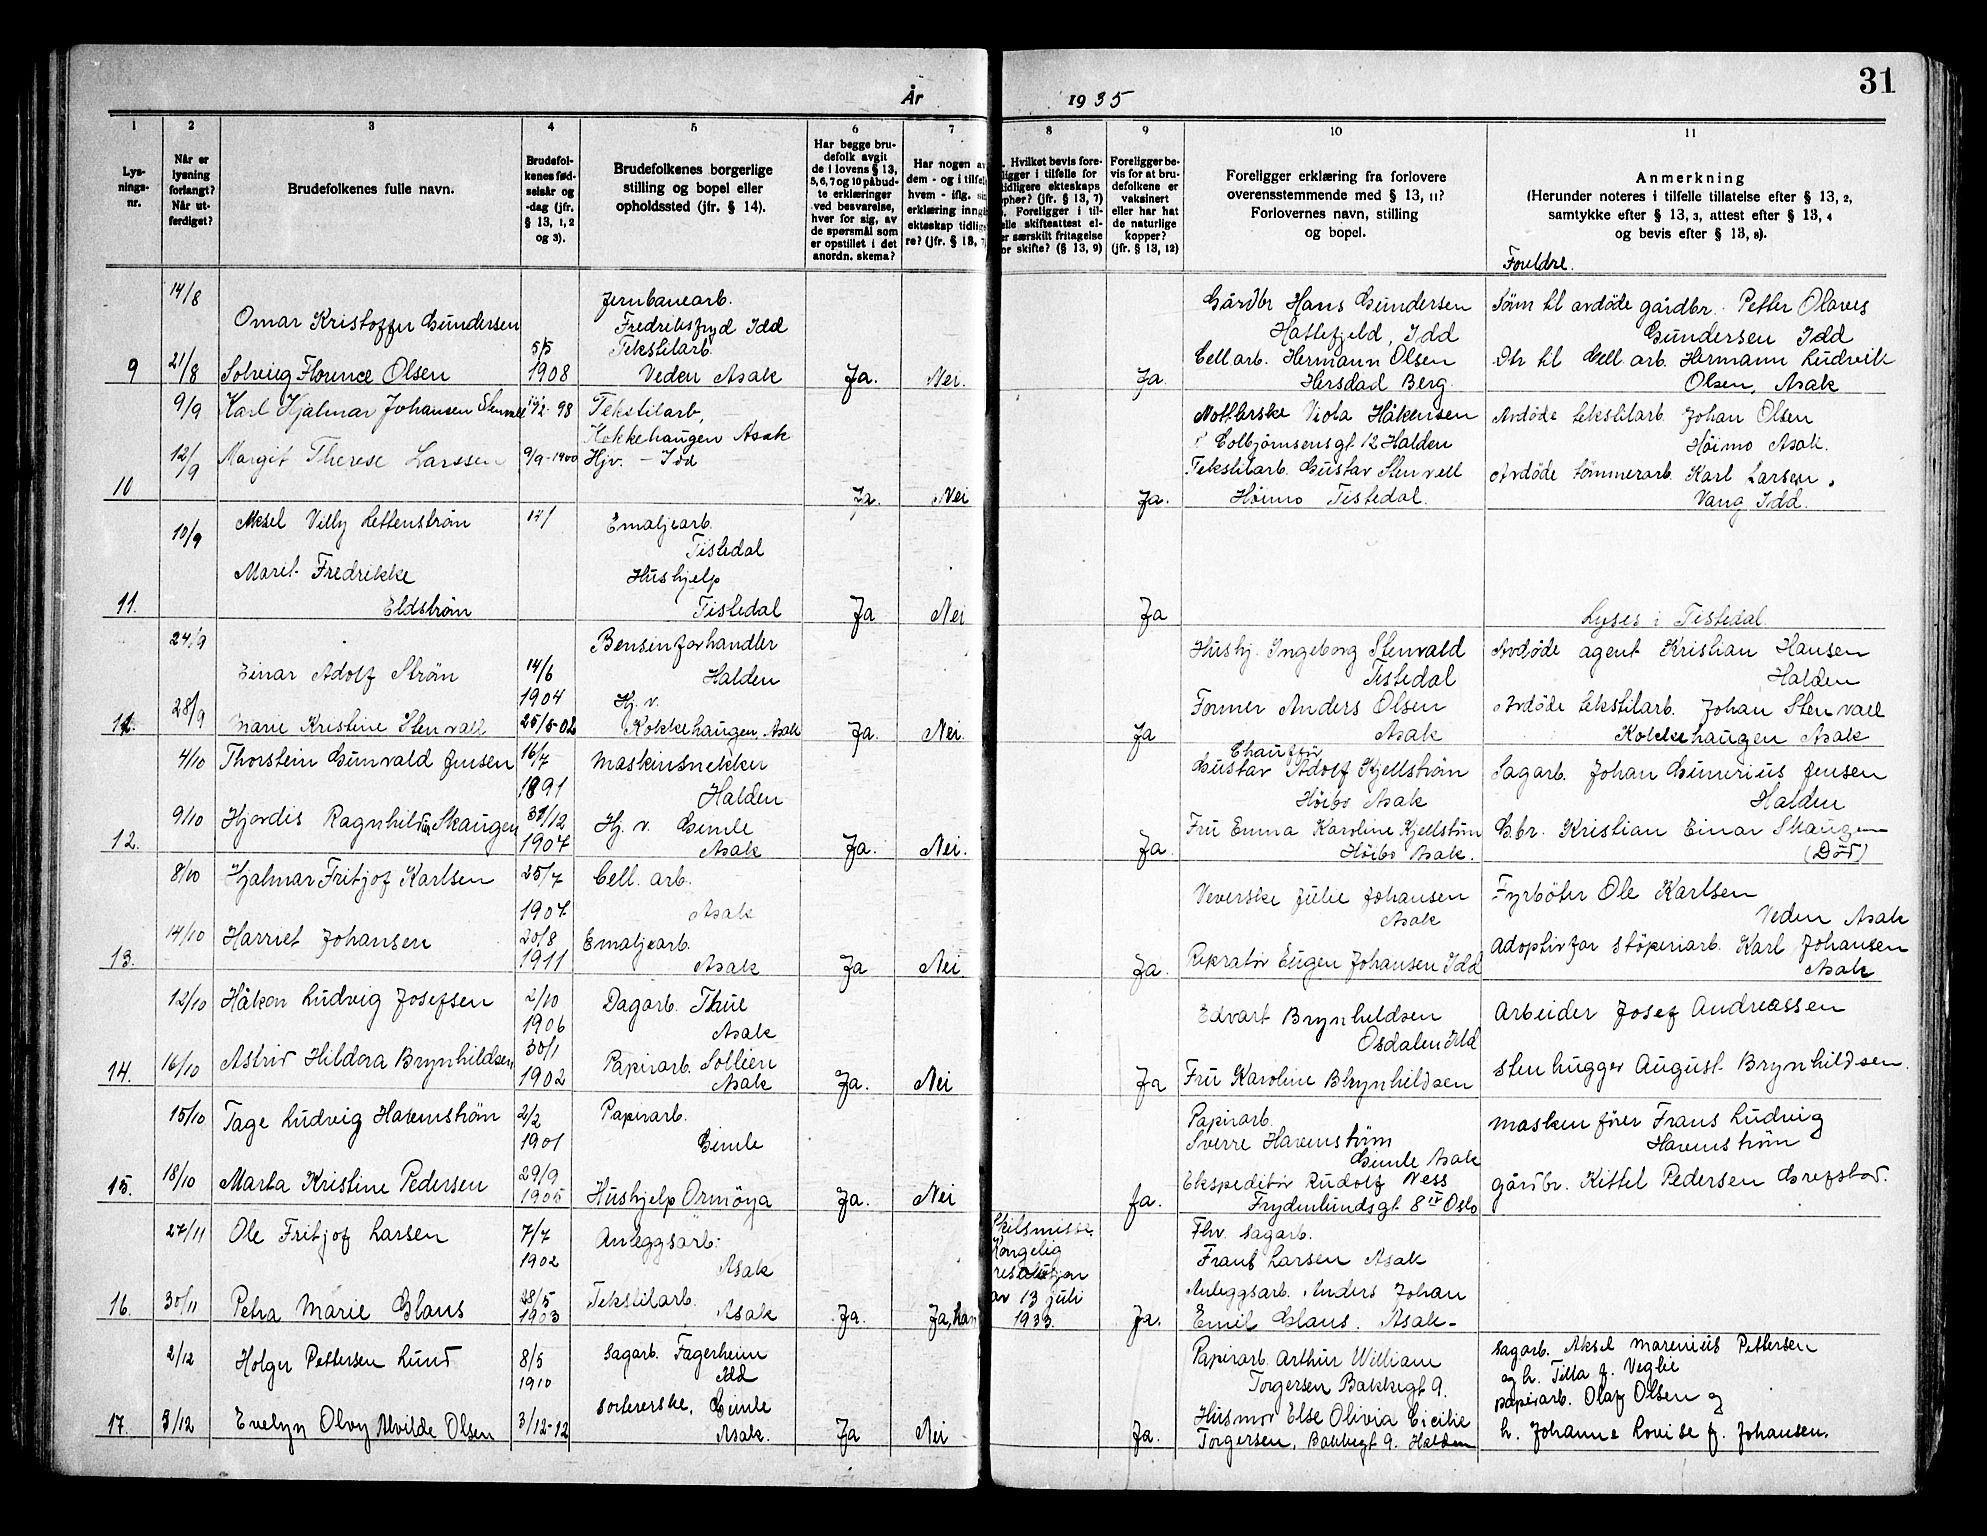 31
År 1935
1 2 3 4 5 6 7 8 9 10 11
Lysnings-nr.
Når er lysning forlangt? Når utferdiget?
Brudefolkenes fulle navn.
Brudefolkenes fødselsår og -dag (jfr. § 13, 1, 2 og 3).
Brudefolkenes borgerlige stilling og bopel eller opholdssted (jfr. § 14).
Har begge brudefolk avgit de i lovens § 13, 5, 6, 7 og 10 påbudte erklæringer ved besvarelse, hver for sig, av de spørsmål som er opstillet i det anordn. skema?
Har nogen av dem - og i tilfelle hvem - iflg.
erklæring inngå
ekteskap tidlige
re? (jfr. § 13, 7)
Hvilket bevis fore-
ligger i tilfelle for
tidligere ekteskaps
opher? (jfr. § 13, 7)
Foreligger i til-
elle skifteattest el-
er særskilt fritagelse
or skifte? (§ 13, 9)
Foreligger bevis for at brudefolkene er vaksinert eller har hat de naturlige kopper? (jfr. § 13, 12)
Foreligger erklæring fra forlovere overensstemmende med § 13, 11? Forlovernes navn, stilling og bopel.
Anmerkning
(Herunder noteres i tilfelle tillatelse efter § 13, 2, samtykke efter § 13, 3, attest efter § 13, 4 og bevis efter § 13, 8).
Foreldre.
14/8 Omar Kristoffer Gundersen
Jernbanearb.
Fredriksfryd Idd
Gårdbr Hans Gundersen
Hattefjeld, Idd
Sønn til avdøde gårdbr. Petter Olaves
Gundersen Idd
9 21/8 Solveig Florence Olsen
5/5
1908
Tekstilarb.
Veden Asak
Ja. Nei. Ja.
Cell arb. Hermann Olsen
Hersdad Berg.
Dtr til Cell arb. Hermann Ludvik
Olsen, Asak
9/9 Karl Hjalmar Johansen Stenvall
98
Tekstilarb,
Kokkehaugen Asak
Viola Håkensen
Colbjørnsensgt 12 Halden
Avdøde tekstilarb. Johan Olsen
Høimo Asak.
10 12/9 Margit Therese Larssen 9/9-1900
Hjv. - Idd
Ja. Nei Ja.
Tekstilarb. Gustav Stenvall
Høimo Tistedal.
Avdøde tømmerarb. Karl Larsen,
Vang Idd.
10/9 Aksel Villy Lettenstrøm
Emaljearb.
Tistedal
11. Marit Fredrikke
Eldstrøm
Hushjelp
Tistedal
Ja Nei Ja
Lyses i Tistedal
24/9 Einar Adolf Strøm
14/6
1904
Bensinforhandler
Halden
Hushj. Ingeborg Stenvald
Tistedal
Avdøde agent Kristian Hansen
Halden
28/9 Marie Kristine Stenvall 25/5-02
Hj. v.
Kokkehaugen, Asak
Ja. Nei. Ja
Former Anders Olsen
Asak
Avdøde tekstilarb. Johan Stenvall
Kokkehaugen Asak
4/10 Thorstein Gunvald Jensen
16/7
1891
Maskinsnekker
Halden
Chaufør
Gustav Adolf Kjellstrøm
Høibo Asak
Sagarb. Johan Gunerius Jensen
Halden
12. 9/10 Hjørdis Ragnhild Skaugen
31/12
1907
Hj. v. Gimle
Asak
Ja. Nei. Ja.
Fru Emma Karoline Kjellstrøm
Høibo Asak.
G.br. Kristian Einar Skaugen
(Død)
8/10 Hjalmar Fritjof Karlsen
25/7
1907
Cell. arb.
Asak
Veverske Julie Johansen
Asak
Fyrbøter Ole Karlsen
Veden Asak
13. 14/10 Harriet Johansen
20/8
1911
Emaljearb.
Asak
Ja Nei. Ja.
Repratør Eugen Johansen Idd
Adoptivfar støperiarb. Karl Johansen
Asak
12/10 Håkon Ludvig Josefsen
2/10
1906
Dagarb. Thue
Asak
Edvart Brynhildsen
Osdalen Idd
Arbeider Josef Andreassen
14. 16/10 Astrid Hildora Brynhildsen
30/1
1902
Papirarb. Sollien
Asak
Ja. Nei Ja
Fru Karoline Brynhildsen
Stenhugger August Brynhildsen.
15/10 Tage Ludvig Havenstrøm
2/2
1901
Papirarb.
Gimle
Papirarb.
Sverre Havenstrøm
Gimle Asak
Maskenfører Frans Ludvig
Havenstrøm
15. 18/10 Marta Kristine Pedersen
29/9
1905
Hushjelp Ormøya
Ja. Nei Ja.
Ekspeditør Rudolf Ness
Frydenlundsgt 8 IV Oslo
Gårdbr. Kittel Pedersen Grefstad.
27/11 Ole Fritjof Larsen
7/7
1902
Anleggsarb.
Asak
Skilsmisse.
Kongelig
resolusjon
av 13 juli
1933.
Fhv. sagarb.
Frans Larsen Asak
16. 30/11 Petra Marie Glans
28/5
1903
Tekstilarb.
Asak
Ja. Ja, han Ja.
Anleggsarb. Anders Johan
Emil Glans. Asak-
2/12 Holger Pettersen Lund
8/5
1910
Sagarb. Fagerheim
Idd
Papirarb. Arthur William
Torgersen Bakkegt 9.
Sagarb. Aksel Marenius Pettersen
og h. Tilla f. Veglie
17. 3/12 Evelyn Olvy Alvilde Olsen 3/12-12
Sortererske, Gimle
Asak.
Ja Nei Ja.
Husmor Else Olivia Cicilie
Torgersen, Bakkegt 9. Halden
papirarb. Olaf Olsen og
h. Johanne Lovise f. Johansen.